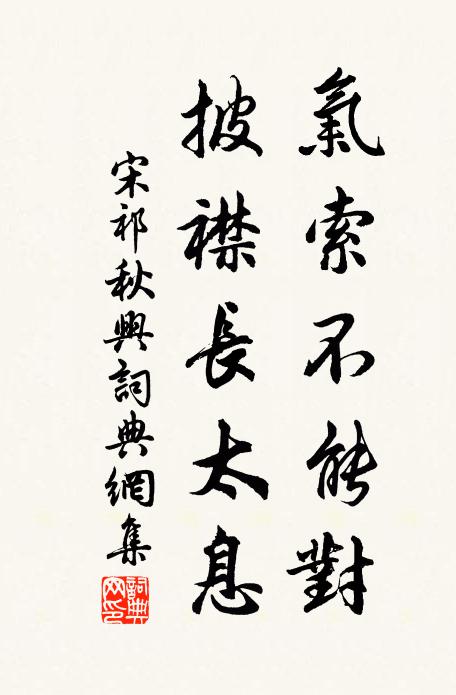 氣索不能對
披襟長太息
宋祁秋興詞典網集
詞典网印